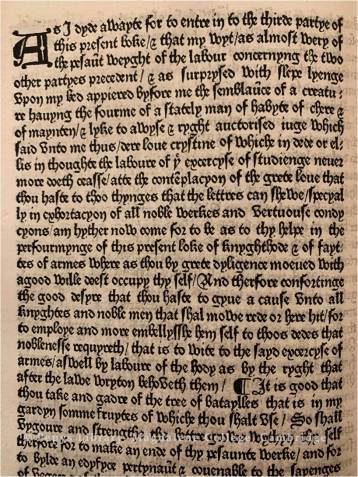 As I dyde awayte for to entre in to the thirde partye of
this present boke/ & that my wyt/ as almost wery of
the pesaūt weyght of the labour concernyng the two
other partyes precedent/ & as surprysed with slepe lyenge
vpon my bed appiered byfore me the semblaūce of a creatu-
re hauyng the fourme of a stately man of habyte of chere &
of maynten/ & lyke to a wyse & ryght auctorised iuge which
said vnto me thus/ dere loue crystine of whiche in dede or el-
lis in thoughte the laboure of yͤ excercyse of studienge neuer
more doeth ceasse/ atte the contēplacyon of the grete loue that
thou haste to thoo thynges that the lettres can shewe/ specyal
ly in exhortacyon of all noble werkes and vertuouse condy
cyons am hyther now come for to be as to thy helpe in the
perfourmynge of this present boke of knyghthode & of fayt-
tes of armes where as thou by grete dyligence moeued with
a good wille doest occupy thy self/ And therfore confortinge
the good desyre that thou haste to gyue a cause vnto all
knyghtes and noble men that shal mowe rede or here hit/ for
to employe and more embellysshe hem self to thoos dedes that
noblenesse requyreth/ that is to wite to the sayd excercyse of
armes/ aswell by laboure of the body as by the ryght that
after the lawe wryton behoveth them/ ¶ It is good that
thou take and gadre of the tree of bataylles that is in my
gardyn somme fruytes of whiche thou shalt vse/ So shall
vygoure and strengthe the better growe
therfore for to make an ende of thy pesaunte werke/ and for
to bylde an edyfyce pertynaūt & couenable to the sayenges